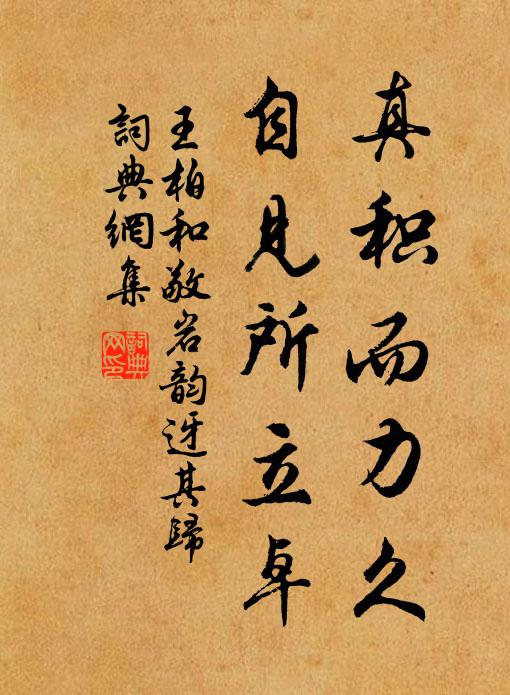 真积而力久
自見所立卓
王柏和敬岩韵迓其歸
詞典網集
詞典網印